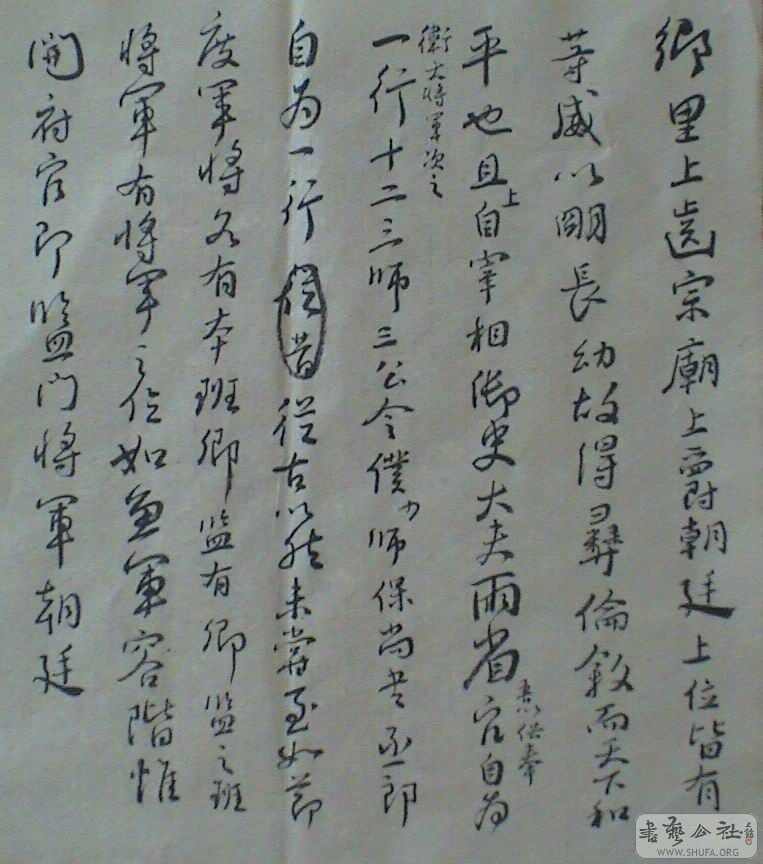 鄉里上齒宗廟上爵朝廷上位皆有
等威以明長幼故得彝倫敘而天下和
平也且上自宰相御史大夫兩省
五品以供奉
官自為
一行十二衛大將軍次之
三師三公令僕少師保尚書丞郎
自為一行
從昔
從古以然未嘗參如節
度軍將各有本班卿監有卿監之班
將軍有將軍之位如魚軍容階雖
開府官即監門將軍朝廷
書藝公社
WWW.SHUFA.ORG